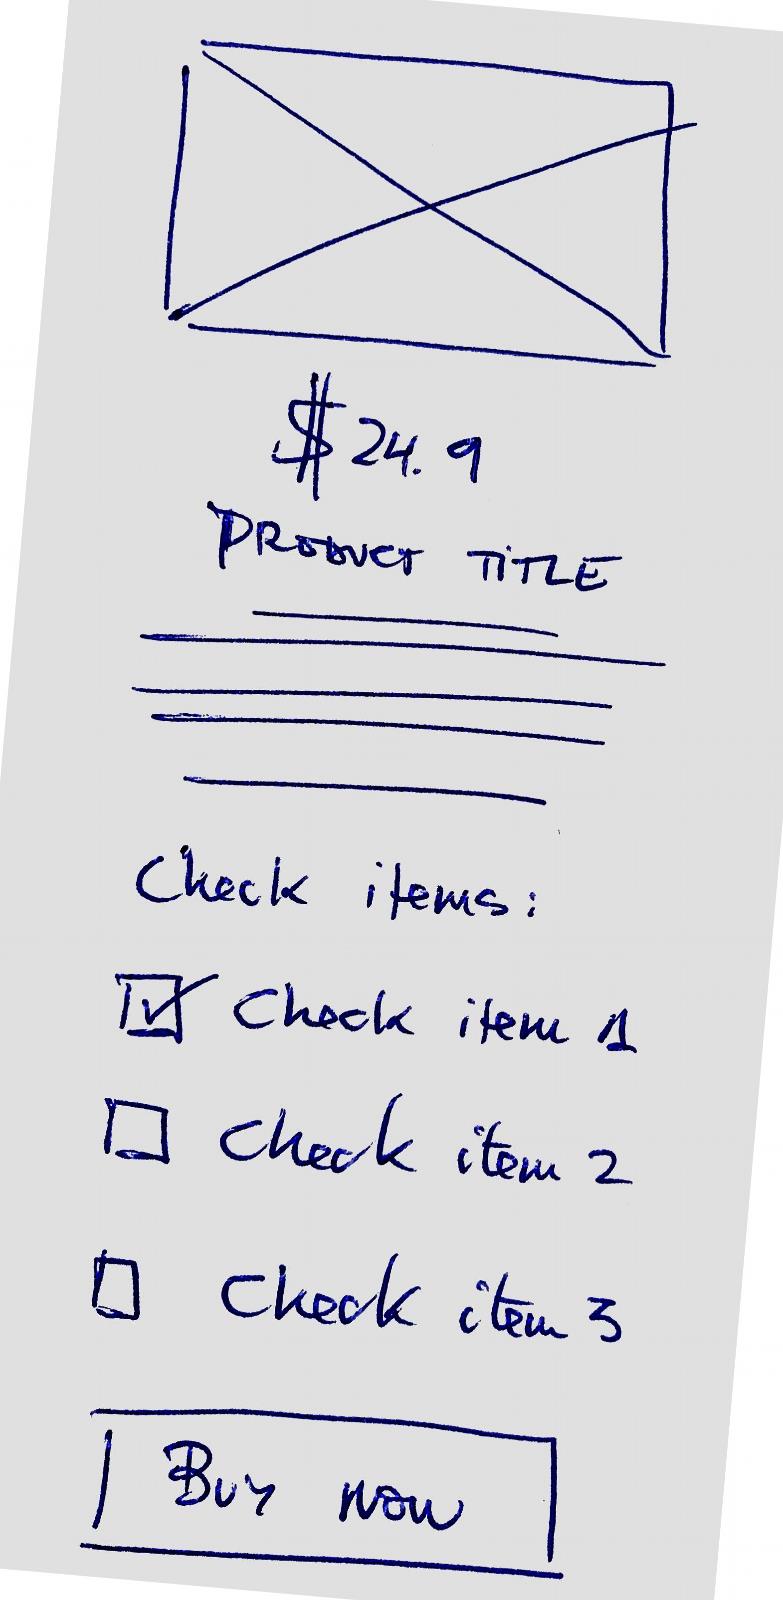 $24.9
PRODUCT TITLE
Check items:
Check item 1
Check item 2
Check item 3
Buy now